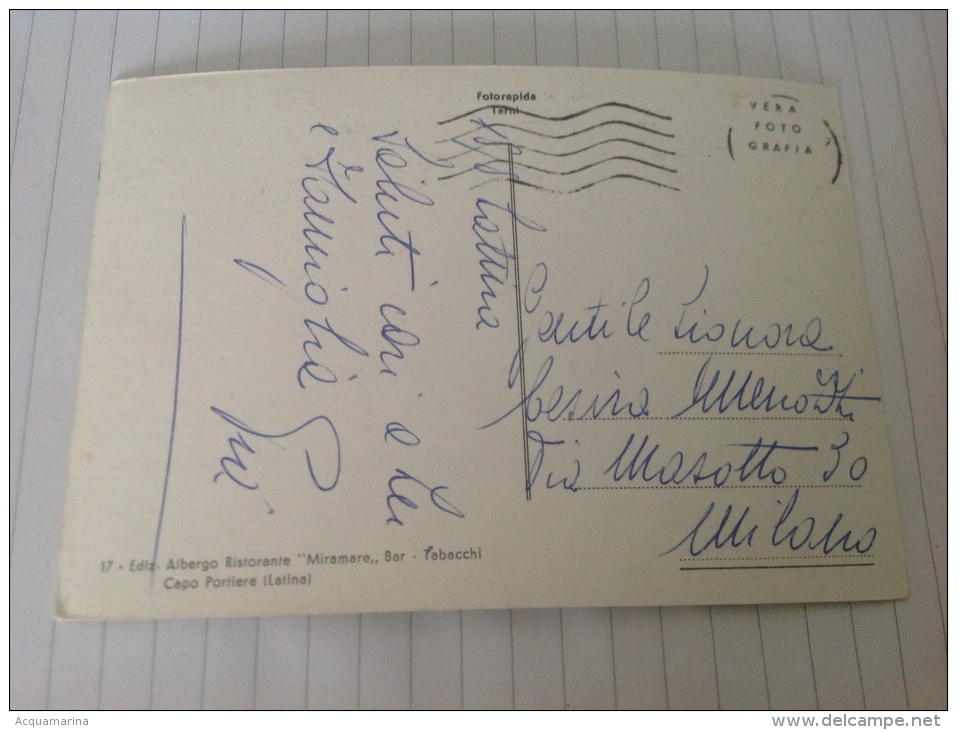 Fotorapida
Terni
VERA
FOTO
GRAFIA
Latina
Saluti cari a Lei
e Famiglia
Gentile Signora
Cesira Menozzi
Via Masotto 30
Milano
17 - Ediz. Albergo Ristorante "Miramare„ Bar - Tabacchi
Capo Portiere (Latina)
Acquamarina
www.delcampe.net